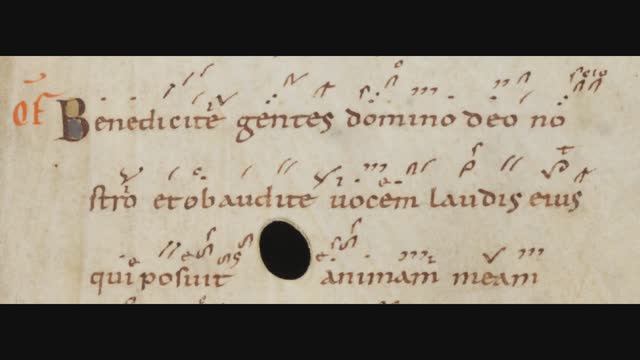 OF Benedicite gentes domino deo no
stro et obaudite uocem laudis eius
qui posuit animam meam